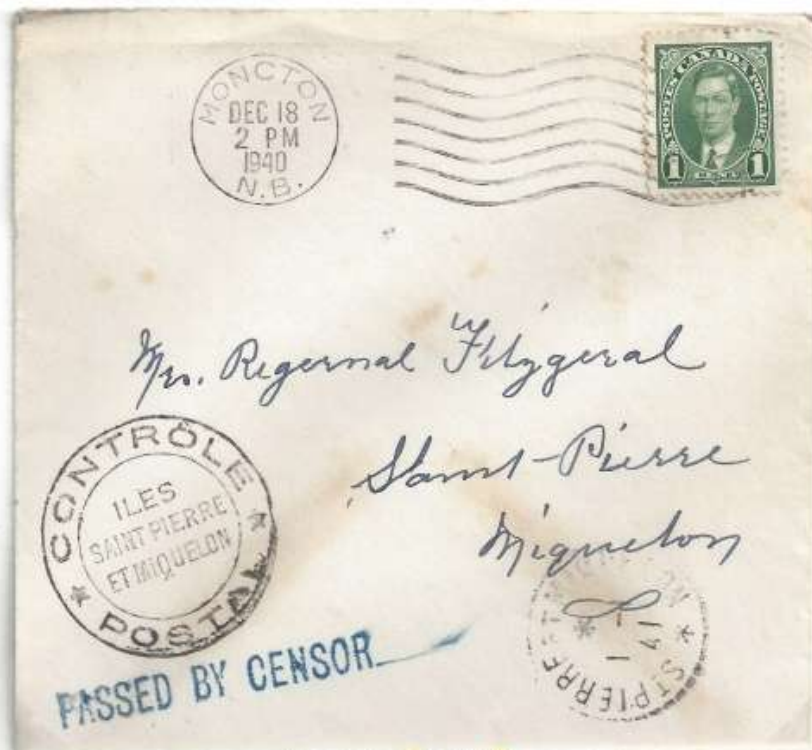 MONCTON
DEC 18
2 PM
1940
N.B.
POSTES CANADA POSTAGE
1 CENT 1
Mrs. Regernal Fitzgeral
Saint-Pierre
Miquelon
CONTRÔLE POSTAL
ILES
SAINT PIERRE
ET MIQUELON
PASSED BY CENSOR
ST PIERRE ET
1
41